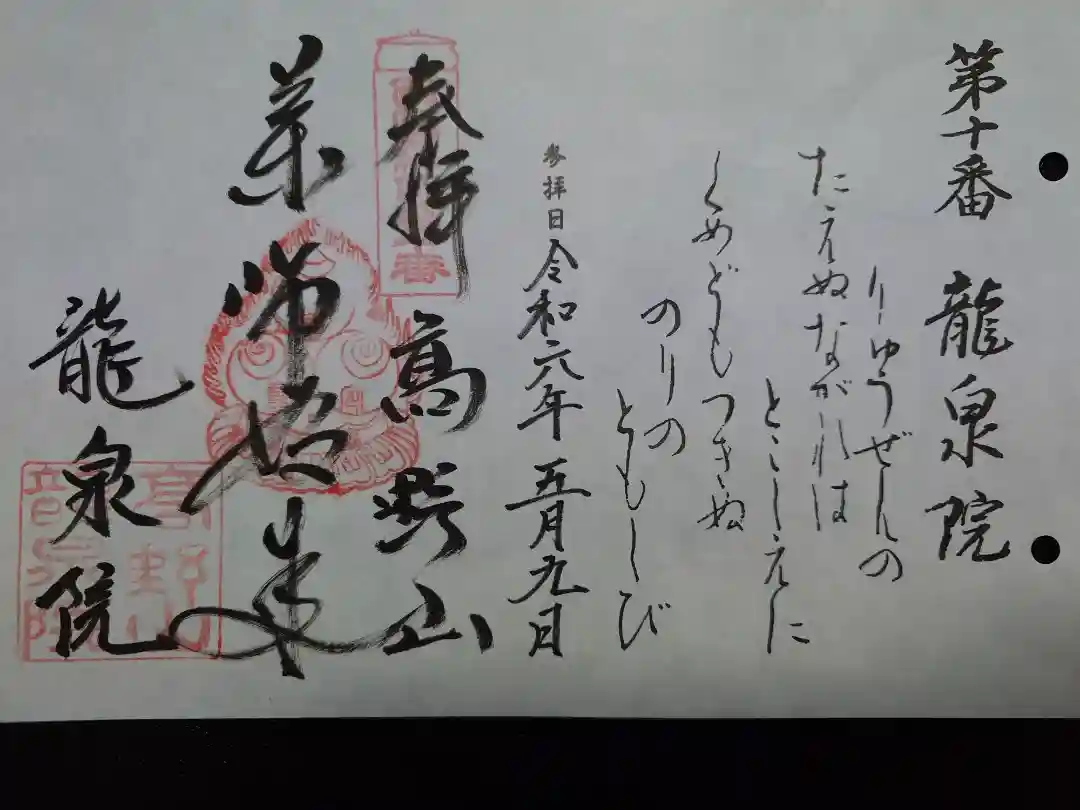 第十番 龍泉院
りゆうぜんの
たえぬながれは
とこしえに
くめどもつきぬ
のりの
ともしび
参拝日 令和六年 五月九日
奉拝 高野山
薬師如来
龍泉院
高野山
龍泉院